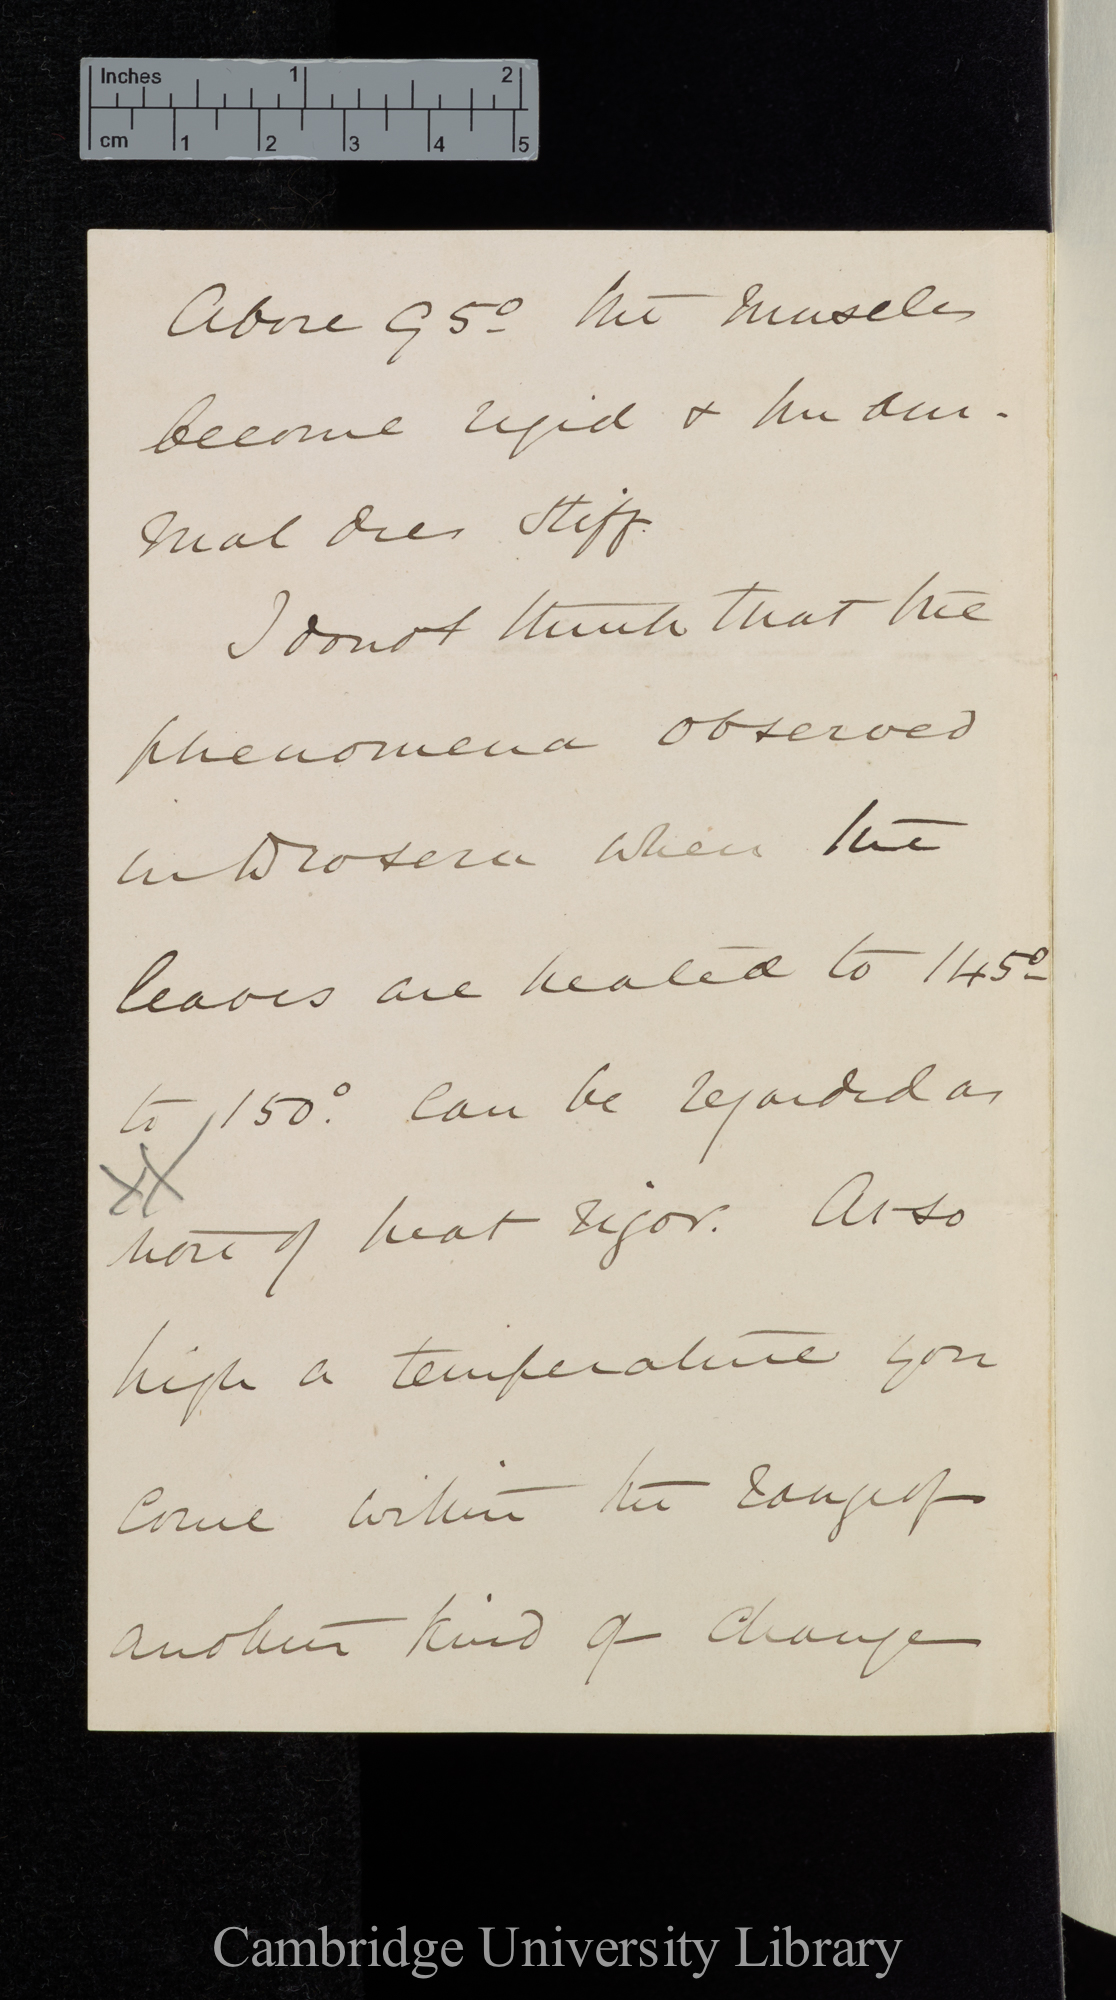 Inches 1 2
cm 1 2 3 4 5
Above 95° the muscles
become rigid & the ani-
mal dies stiff.
I do not think that the
phenomena observed
in Drosera when the
leaves are heated to 145°
to 150° can be regarded as
XX
those of heat rigor. At so
high a temperature you
come within the range of
another kind of change
Cambridge University Library